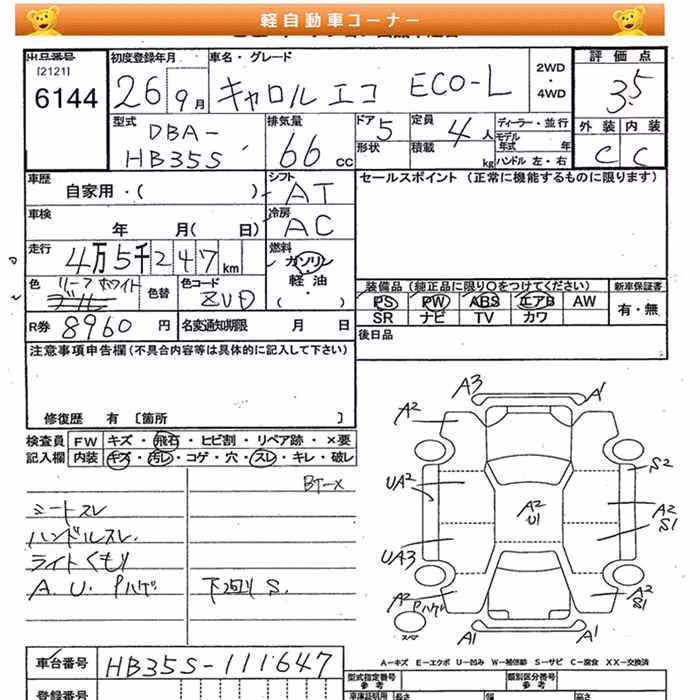 軽自動車コーナー
出品番号
[2121]
6144
初度登録年月
26 9月
車名・グレード
キャロル エコ ECO-L
2WD
・
4WD
評価点
3.5
外装 内装
C C
型式
DBA-
HB35S
排気量
66 cc
ドア 5
形状
定員 4人
積載 kg
ディーラー・並行
モデル
年式 年
ハンドル 左・右
車歴
自家用・( )
シフト
AT
セールスポイント (正常に機能するものに限ります)
車検
年 月( 日)
冷房
AC
走行
4万5千247km
燃料
ガソリン
軽油
( ・ )
色
ホワイト
色替
色コード
ZVD
R券 8960 円
名変通知期限 月 日
装備品 (純正品に限り〇をつけてください)
新車保証書
PS PW ABS エアB AW
有・無
SR ナビ TV カワ
後日品
注意事項申告欄(不具合内容等は具体的に記入して下さい)
修復歴 有 〔箇所 〕
検査員
記入欄
FW キズ・飛石・ヒビ割・リペア跡・×要
内装 キズ・汚レ・コゲ・穴・スレ・キレ・破レ
シートスレ
ハンドルスレ
ライトくもり
A.U.Pハゲ 下回りS.
A3
A1
A2
S2
UA2
A2
U1
A2
S1
UA3
A2
Pハゲ
A2
S1
A1
A1
A-キズ E-エクボ U-凹み W-補修跡 S-サビ C-腐食 XX-交換済
車台番号
HB35S-111647
登録番号
型式指定番号
参考
類別区分番号
参考
車庫証明用
長さ
幅
高さ